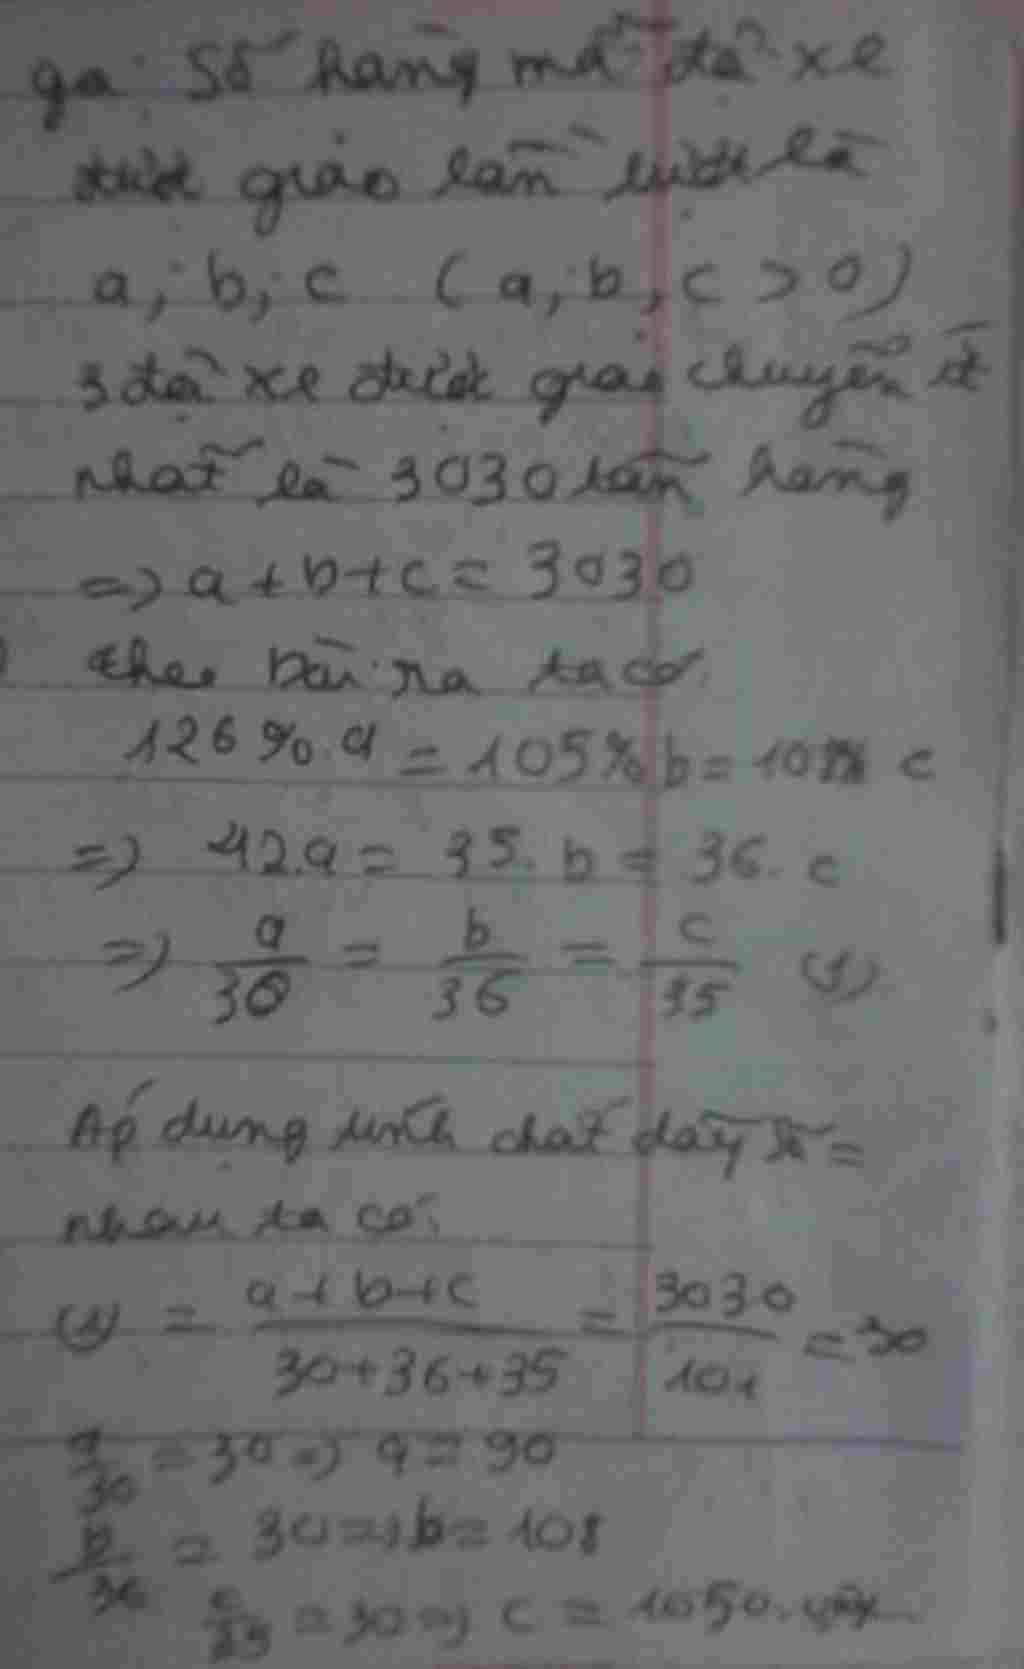 gọi số hàng mỗi đội xe
được giao lần lượt là
a; b; c ( a; b; c > 0 )
3 đội xe được giao chuyển ít
nhất là 3030 tấn hàng
=> a + b + c = 3030
theo bài ra ta có
126 %. a = 105% b = 108% c
=> 42.a = 35. b = 36. c
=> a/30 = b/36 = c/35 (1)
Áp dụng tính chất dãy tỉ =
nhau ta có:
(1) = a + b + c / 30 + 36 + 35 = 3030/101 = 30
a/30 = 30 => a = 90
b/36 = 30 => b = 108
= 30 => c = 1050.